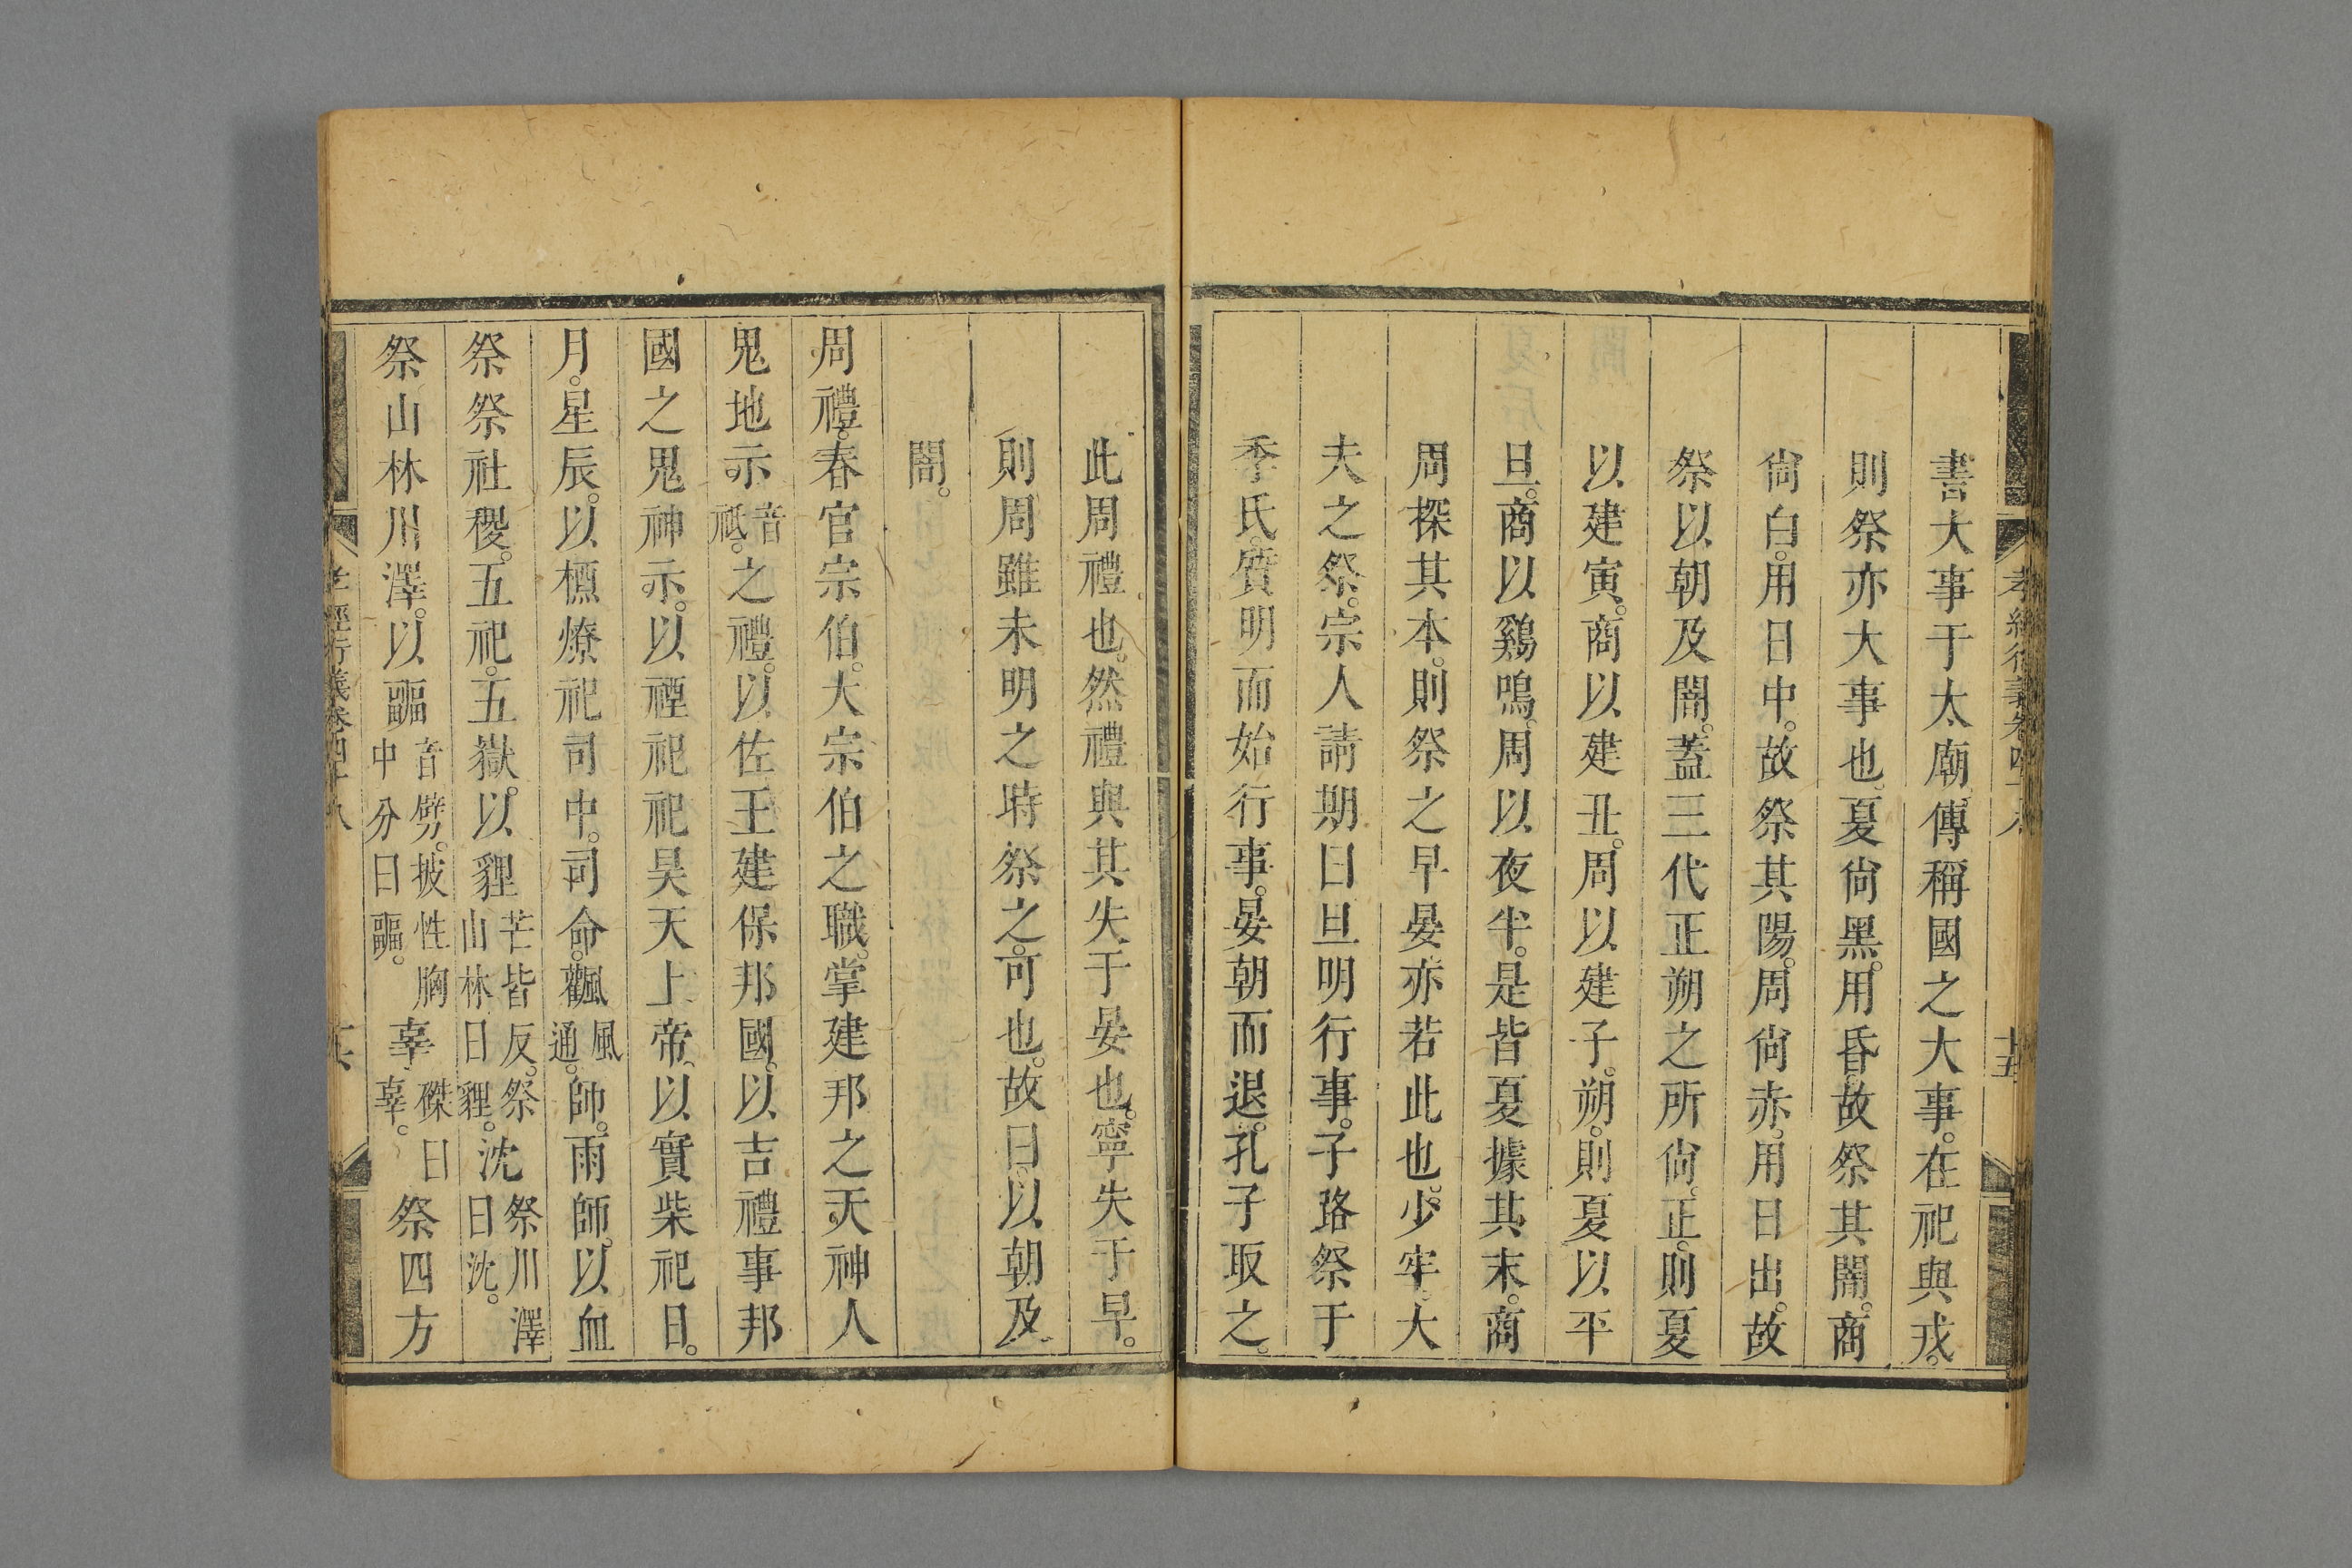 書大事于太廟傳稱國之大事。在祀與戎。
則祭亦大事也。夏尙黑。用昏。故祭其闇。商
尙白。用日中。故祭其陽。周尙赤。用日出。故
祭以朝及闇。蓋三代正朔之所尙。正。則夏
以建寅。商以建丑。周以建子。朔。則夏以平
旦。商以鷄鳴。周以夜半。是皆夏據其末。商
周探其本。則祭之早晏亦若此也。少牢。大
夫之祭。宗人請期曰旦明行事。子路祭于
季氏。質明而始行事。晏朝而退。孔子取之。
此周禮也。然禮與其失于晏也。寧失于早。
則周雖未明之時祭之。可也。故曰。以朝及
闇。
周禮。春官宗伯。大宗伯之職。掌建邦之天神人
鬼地示音祗。之禮。以佐王建保邦國。以吉禮事邦
國之鬼神示。以禋祀祀昊天上帝。以實柴祀日。
月。星辰。以槱燎祀司中。司命。飌風通。師。雨師。以血
祭祭社稷。五祀。五嶽。以貍芒皆反。祭山林曰貍。沈祭川澤曰沈。
祭山林川澤。以疈音劈。披牲胸中分曰疈。辜磔曰辜。祭四方
孝經衍義卷四十八